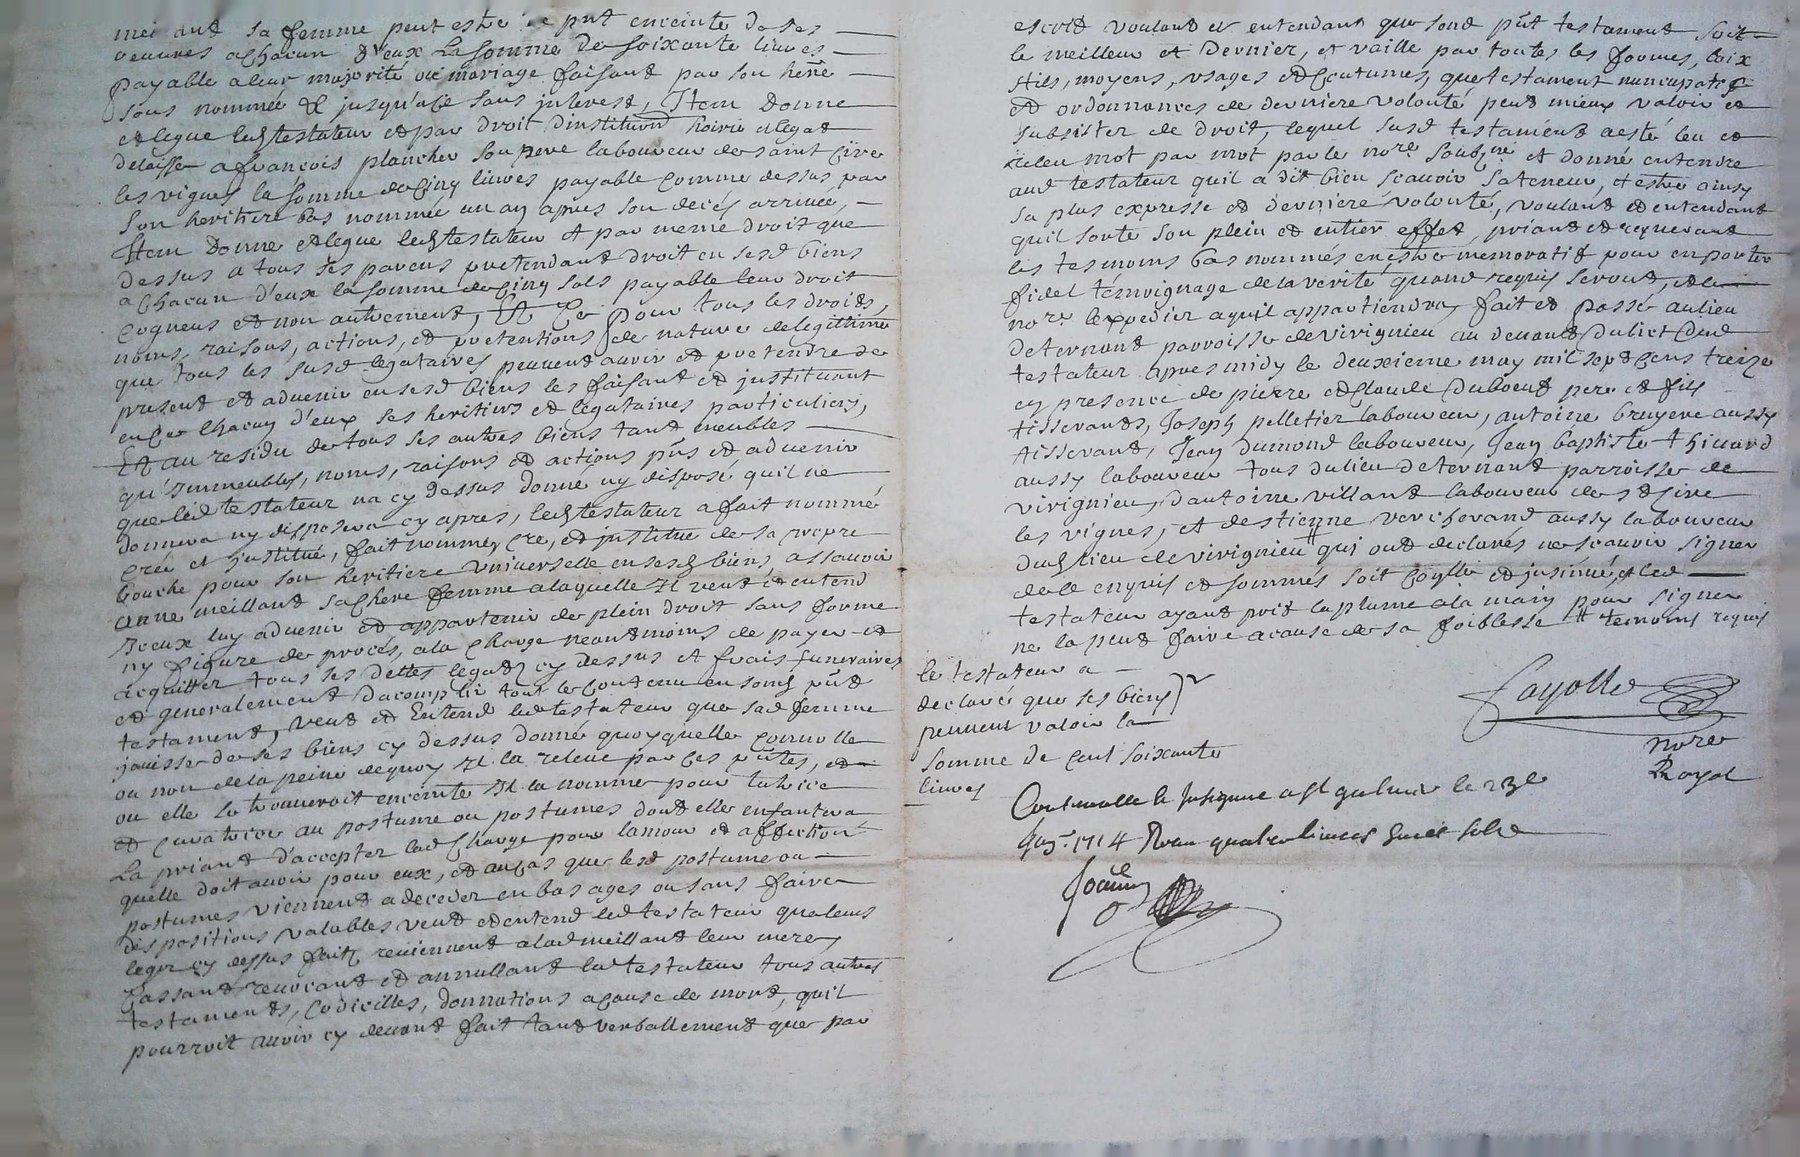 sa femme peut estre ce pnt enceinte de ses
oeuvres a chacun d'eux La somme de soixante livres
payable a leur majorité ou mariage faisant par son herre
sous nommée & jusqu'alle sans interest, Item Donne
et legue ledt testateur et par droit d'institution hoirie et legat
delaisse a françois plancher son pere laboureur de saint Cire
les vignes la somme de Cinq livres payable Comme dessus par
Son heritiere bas nommée un an apres son decés arrivée,
Item Donne et legue ledt testateur et par meme droit que
dessus a tous ses parens pretendant droit en sesd biens
a Chacun d'eux la somme de Cinq sols payable leur droit
Cogneus et non autrement, Et Ce pour tous les droits,
noms, raisons, actions, et pretentions de nature de legitime
que tous les susd legataires peuvent avoir et pretendre de
present et advenir en sesd biens les faisant et instituant
en Ce Chacun d'eux ses heritiers et legataires particuliers,
Et au residu de tous ses autres biens tant meubles
qu'Immeubles, noms, raisons et actions pnts et advenir
que led testateur na cy dessus donné ny disposé quil ne
donnera ny disposera cy apres, ledt testateur a fait nommé
créé et institué, fait nomme, cre, et institue de sa propre
bouche pour son heritiere Universelle en sesd biens, assavoir
anne meillant sa Chere femme a laquelle Il veut et entend
Iceux luy advenir et appartenir de plein droit sans forme
ny figure de proces, a la Charge neantmoins de payer et
acquitter tous ses dettes legats cy dessus et frais funeraires
et generalement d'acomplir tout le Contenu en sond pnt
testament, Veut et Entend led testateur que sad femme
jouisse de ses biens cy dessus donné quoyquelle Convolle
ou non de la peine dequoy Il la releve par Ces pntes, et
ou elle se trouveroit enceinte Il la nomme pour tutrice
et Curatrice au postume ou postumes dont elle enfantera
La priant d'accepter lad Charge pour lamour et affection
quelle doit avoir pour eux, et au Cas que lesd postume ou
postumes viennent a deceder en bas ages ou sans faire
dispositions valables veut et entend led testateur que leurs
legz cy dessus faitz reviennent a lad meillant leur mere,
Cassant revocant et annullant led testateur tous autres
testaments, Codicilles, donnations a Cause de mort, quil
pourroit avoir cy devant fait tant verballement que par
escrit voulant et entendant que sond pnt testament soit
le meilleur et Dernier, et vaille par toutes les formes, loix
stils, moyens, usages et Coutumes, que testament nuncupatif
et ordonnances de derniere volonté peut mieux valoir et
subsister de droit, lequel susd testament a esté leu et
releu mot par mot par le nore soubzne et donné entendre
aud testateur quil a dit bien scavoir sa teneur, et estre ainsy
sa plus expresse et derniere volonté, voulant et entendant
quil sorte son plein et entier effet, priant et requerant
les tesmoins bas nommés en estre memoratif pour en porter
fidel temoignage de la verité quand requis seront, et le
nore lexpedier a quil appartiendra, fait et passé au lieu
de ternant parroisse de Virignieu au devant Du lict Dud
testateur apres midy le deuxieme may mil sept Cens treize
en presence de pierre et Claude Duboeut pere et fils
tisserants, Joseph pelletier laboureur, antoine bruyere aussy
tisserant, Jean Dumond laboureur, Jean baptiste thinard
aussy laboureur tous du lieu de ternant parroisse de
virignieu, d'antoine villant laboureur de st Sire
les vignes, et destienne vercherand aussy laboureur
dudt lieu de virignieu # qui ont declarés ne scavoir signer
de ce enquis et sommés soit Coylle et insinué, et led
testateur ayant prit la plume a la main pour signer
ne la peut faire a cause de sa foiblesse # temoins requis
le testateur a
declaré que ses biens
peuvent valoir la
somme de Cent soixante
livres
fayolle
nore
Royal
Controollé & Insinué a St galmier le 23e
1714 Receu quatre livres